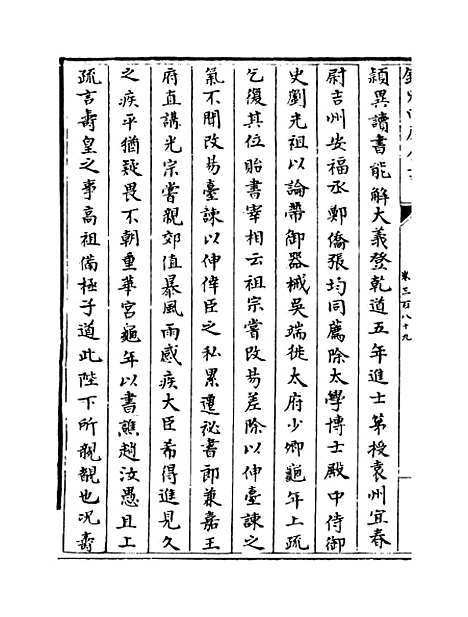 卷三百八十九
穎異讀書能解大義登乾道五年進士第授袁州宜春
尉吉州安福丞鄭僑張均同薦除太學博士殿中侍御
史劉光祖以論帶御器械吳端徙太府少卿龜年上疏
乞復其位貽書宰相云祖宗嘗改易差除以伸臺諫之
氣不聞改易臺諫以伸倖臣之私累遷祕書郎兼嘉王
府直講光宗嘗親郊值暴風雨感疾大臣希得進見久
之疾平猶疑畏不朝重華宮龜年以書譙趙汝愚且上
疏言壽皇之事高祖備極子道此陛下所親覩也况壽